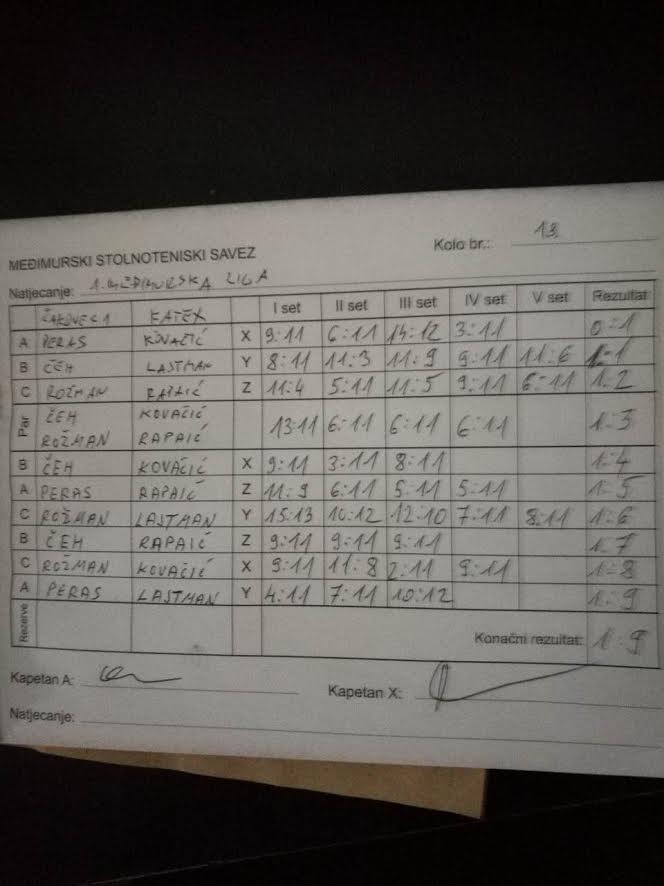 MEĐIMURSKI STOLNOTENISKI SAVEZ
Kolo br.: 13.
Natjecanje: 1. MEĐIMURSKA LIGA
ČAKOVEC 1 KATEX I set II set III set IV set V set Rezultat
A PERAS KOVAČIĆ X 9:11 6:11 14:12 3:11 0:1
B ČEH LASTMAN Y 8:11 11:3 11:9 9:11 11:6 1:1
C ROŽMAN RAPAIĆ Z 11:4 5:11 11:5 9:11 6:11 1:2
Par ČEH KOVAČIĆ
ROŽMAN RAPAIĆ 13:11 6:11 6:11 6:11 1:3
B ČEH KOVAČIĆ X 9:11 3:11 8:11 1:4
A PERAS RAPAIĆ Z 11:9 6:11 5:11 5:11 1:5
C ROŽMAN LASTMAN Y 15:13 10:12 12:10 7:11 8:11 1:6
B ČEH RAPAIĆ Z 9:11 9:11 9:11 1:7
C ROŽMAN KOVAČIĆ X 9:11 11:8 2:11 9:11 1:8
A PERAS LASTMAN Y 4:11 7:11 10:12 1:9
Rezerve
Konačni rezultat: 1:9
Kapetan A:
Kapetan X:
Natjecanje: